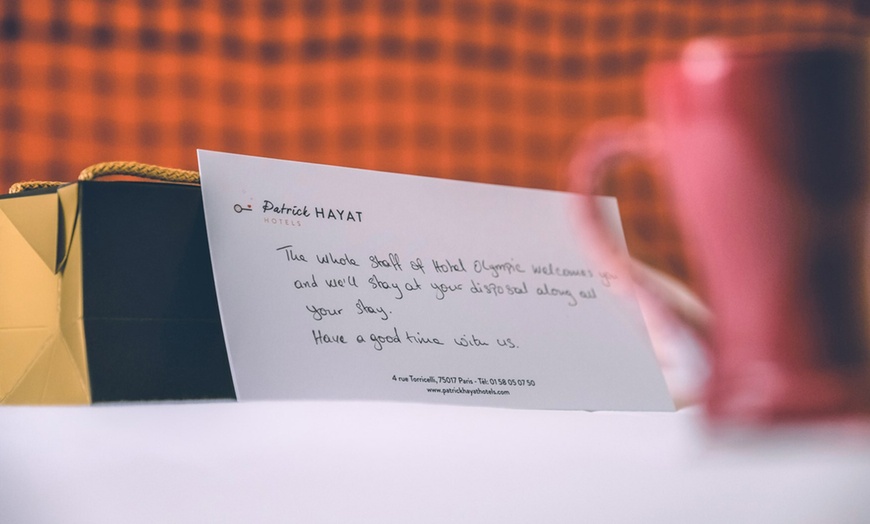 Patrick HAYAT
HOTELS
The whole staff of Hotel Olympic welcomes you
and we'll stay at your disposal along all
your stay.
Have a good time with us.
4 rue Torricelli, 75017 Paris - Tél: 01 58 05 07 50
www.patrickhayathotels.com